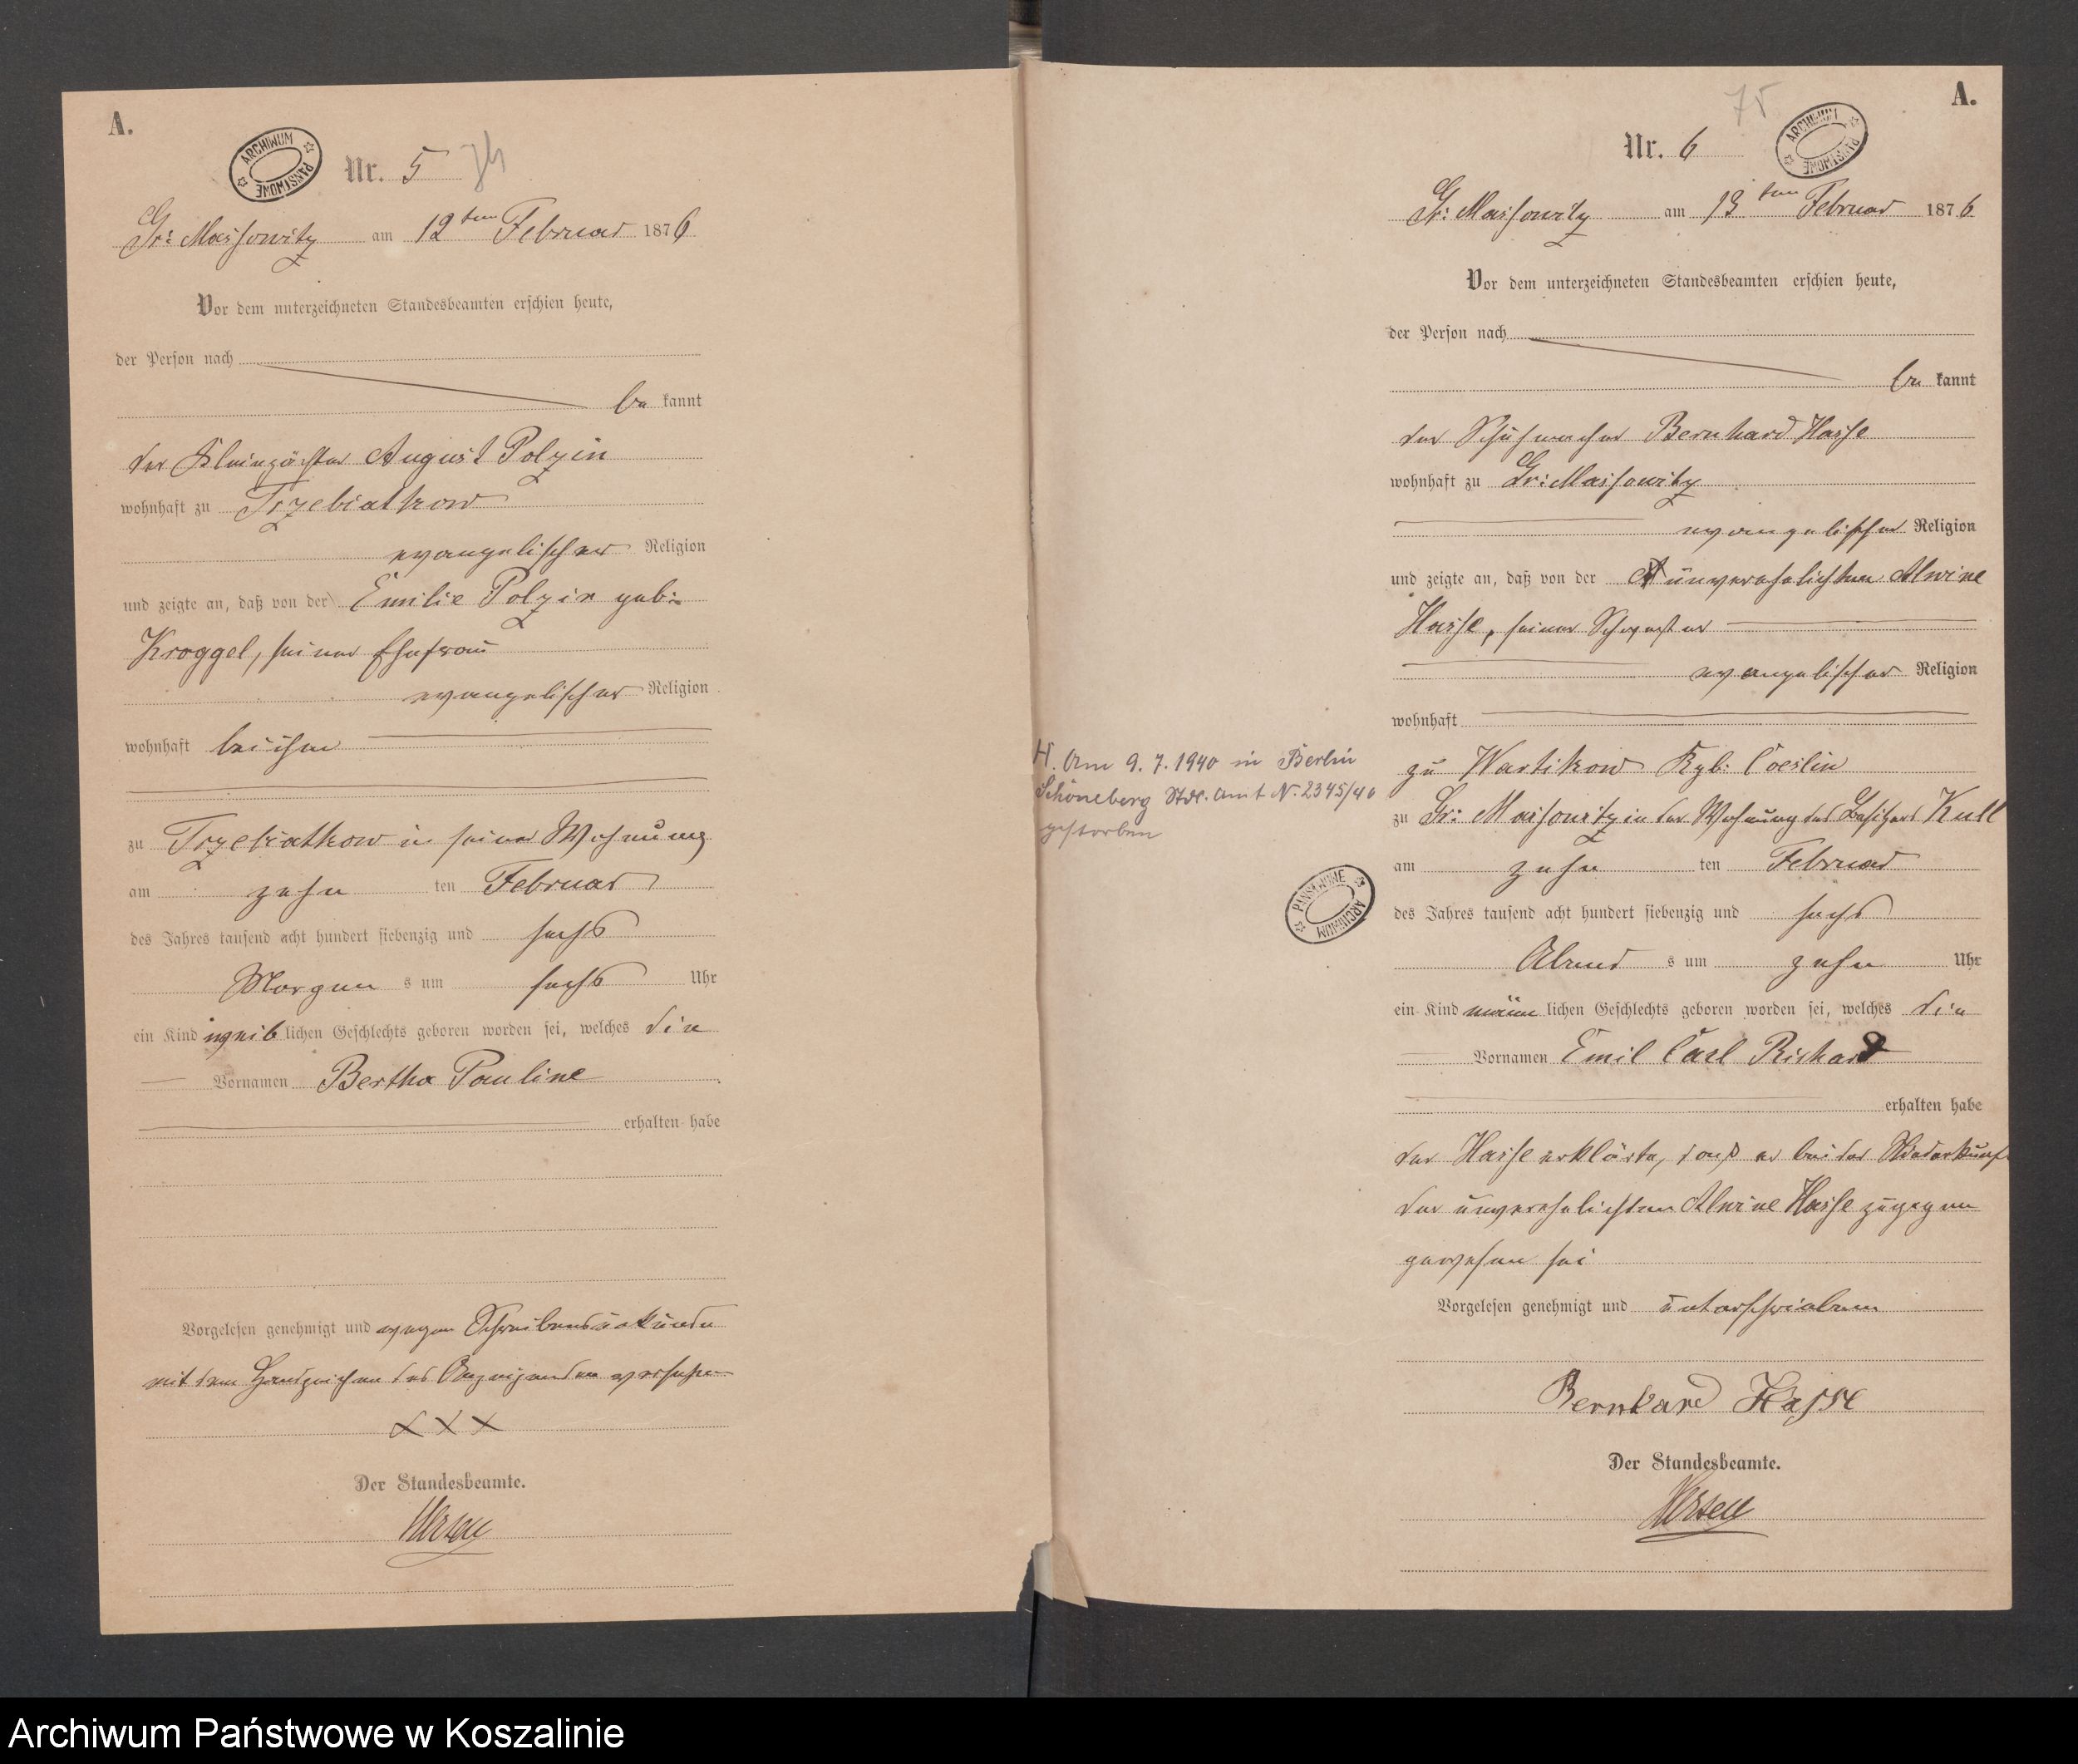 A.
ARCHIWUM PAŃSTWOWE
Nr. 5 74
Gr: Massowitz am 12ten Februar 1876
Vor dem unterzeichneten Standesbeamten erschien heute,
der Person nach
be kannt
der Kleinpächter August Polzin
wohnhaft zu Trzebiatkow
evangelischer Religion
und zeigte an, daß von der Emilie Polzin geb:
Kroggel, seiner Ehefrau
evangelischer Religion
wohnhaft bei ihm
zu Trzebiatkow in seiner Wohnung
am zehn ten Februar
des Jahres tausend acht hundert siebenzig und sechs
Morgen s um sechs Uhr
ein Kind weib lichen Geschlechts geboren worden sei, welches die
Vornamen Bertha Pauline
erhalten habe
Vorgelesen genehmigt und wegen Schreibensunkunde
mit dem Handzeichen des Anzeigenden versehen
XXX
Der Standesbeamte.
A.
75
Nr. 6
ARCHIWUM PAŃSTWOWE
Gr: Massowitz am 13ten Februar 1876
Vor dem unterzeichneten Standesbeamten erschien heute,
der Person nach
be kannt
der Schuhmacher Bernhard Hasse
wohnhaft zu Gr: Massowitz
evangelischer Religion
und zeigte an, daß von der unverehelichten Alwine
Hasse, seiner Schwester
evangelischer Religion
wohnhaft
zu Wartikow Rgb: Coeslin
zu Gr: Massowitz in der Wohnung des Besitzers Kull
am zehn ten Februar
des Jahres tausend acht hundert siebenzig und sechs
Abend s um zehn Uhr
ein Kind männ lichen Geschlechts geboren worden sei, welches die
Vornamen Emil Carl Richard
erhalten habe
der Hasse erklärte, daß er bei der Niederkunft
der unverehelichten Alwine Hasse zugegen
gewesen sei
Vorgelesen genehmigt und unterschrieben
Bernhard Hasse
Der Standesbeamte.
H. Am 9.7.1940 in Berlin
Schöneberg Std. Amt N. 2345/40
gestorben
PAŃSTWOWE ARCHIWUM
Archiwum Państwowe w Koszalinie